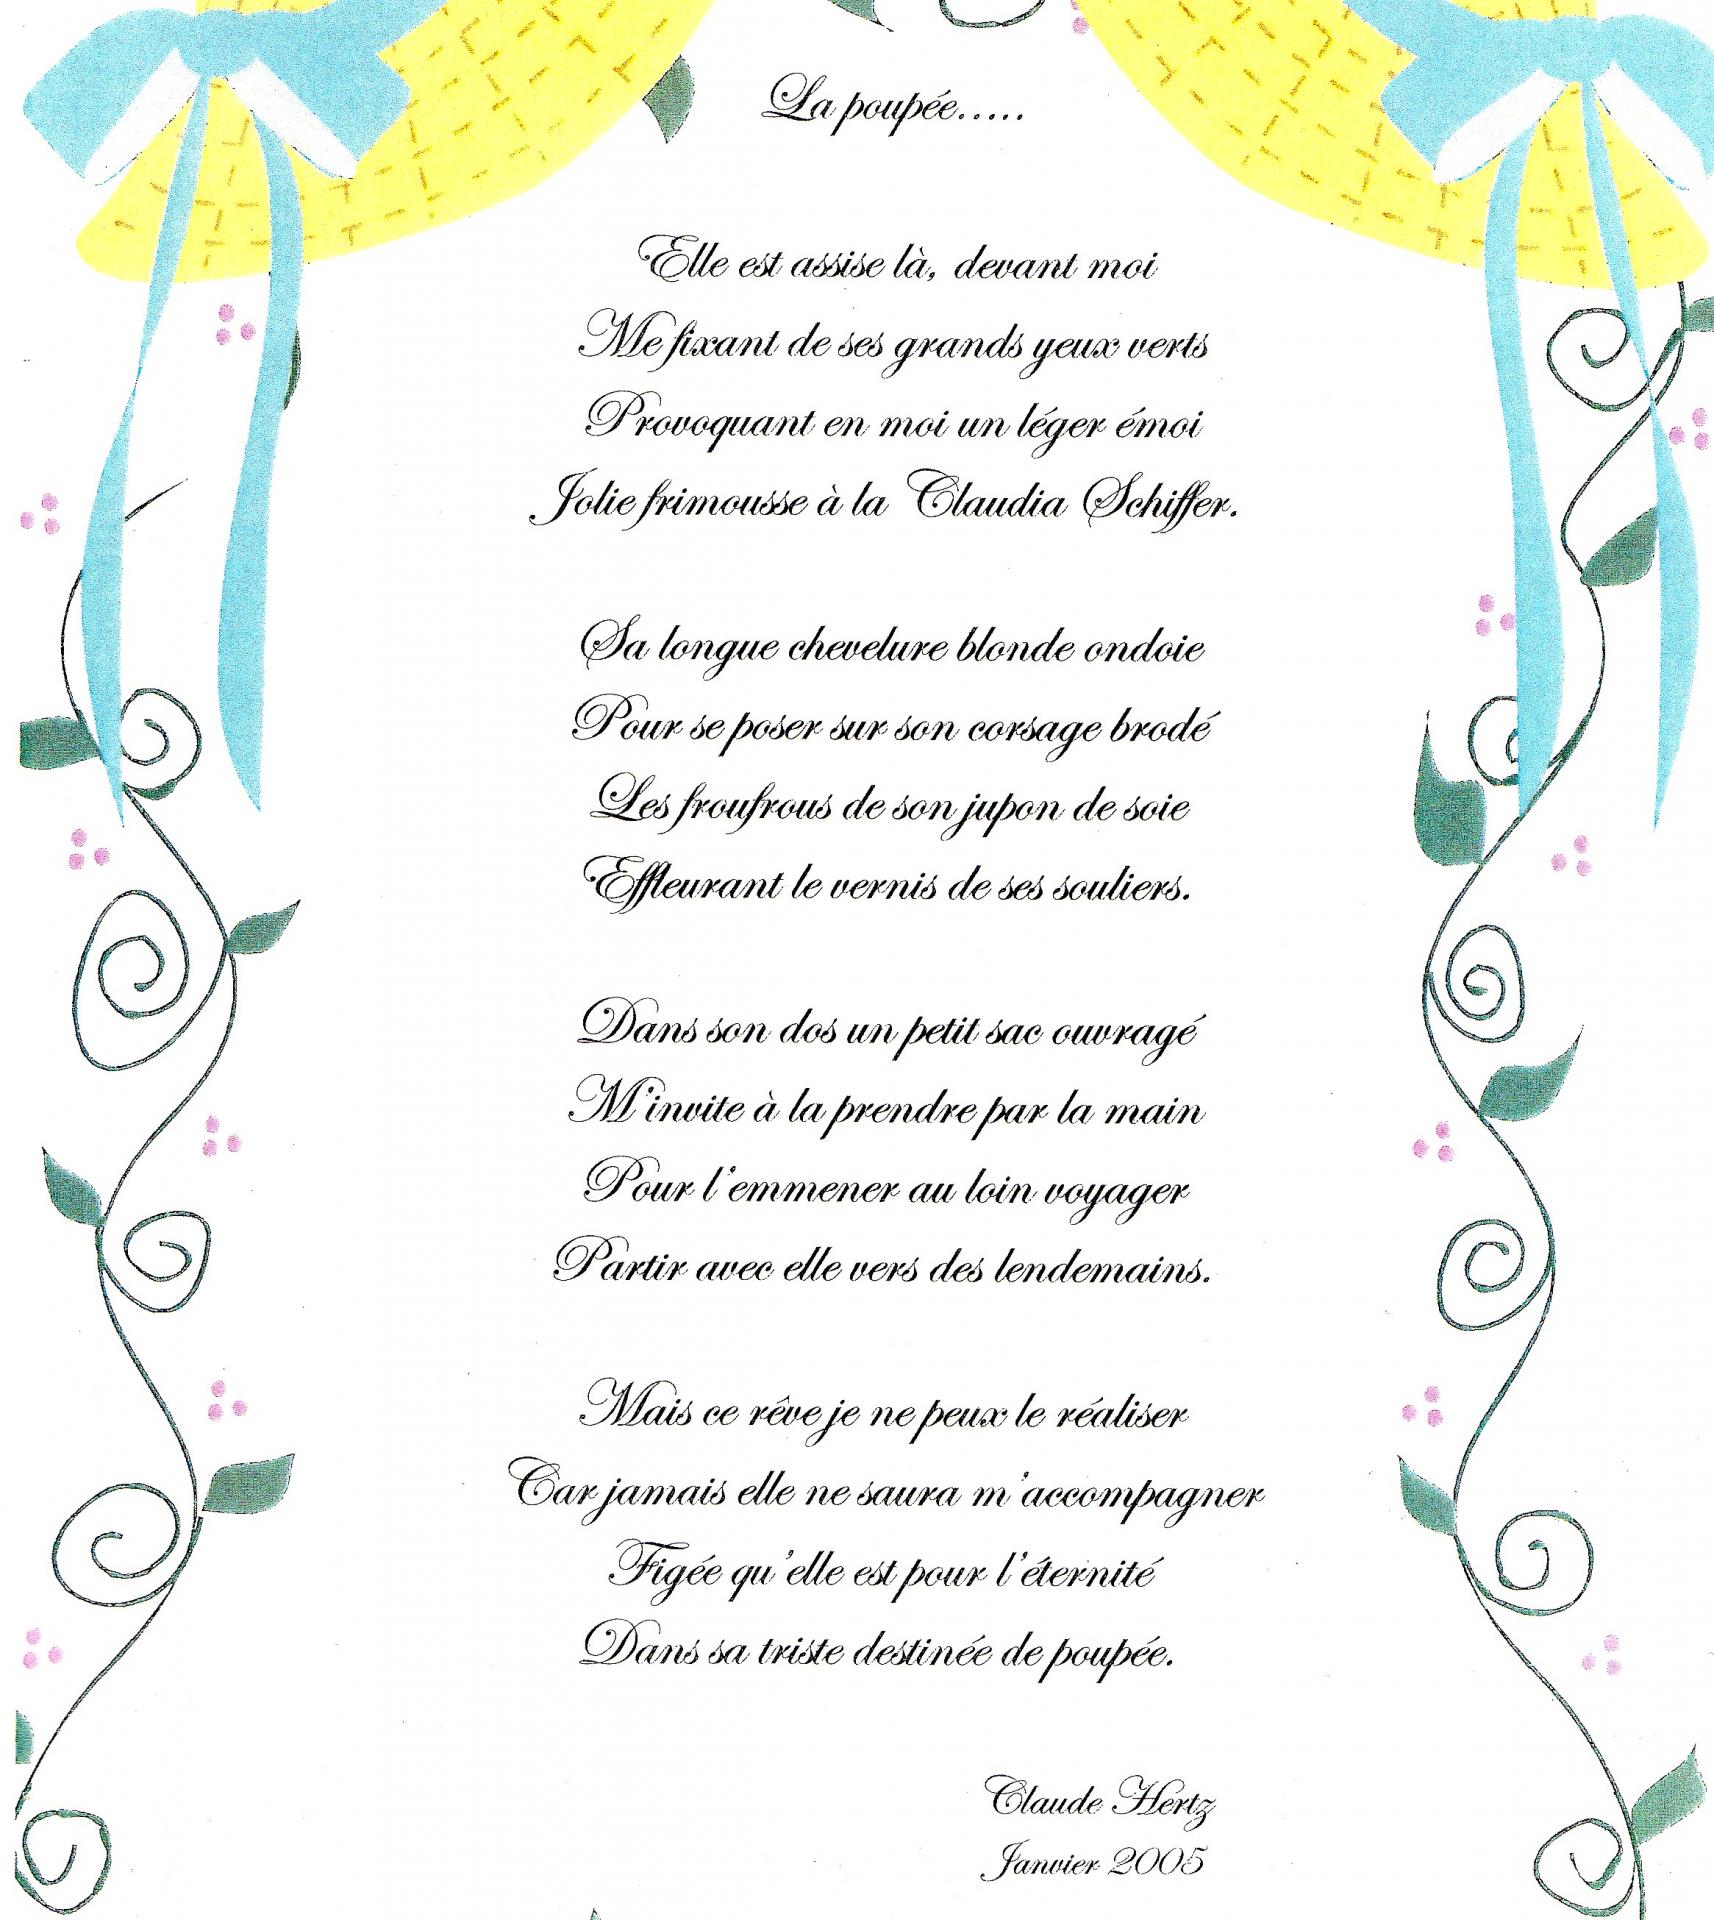 La poupée.....
Elle est assise là, devant moi
Me fixant de ses grands yeux verts
Provoquant en moi un léger émoi
Jolie frimousse à la Claudia Schiffer.
Sa longue chevelure blonde ondoie
Pour se poser sur son corsage brodé
Les froufrous de son jupon de soie
Effleurant le vernis de ses souliers.
Dans son dos un petit sac ouvragé
M'invite à la prendre par la main
Pour l'emmener au loin voyager
Partir avec elle vers des lendemains.
Mais ce rêve je ne peux le réaliser
Car jamais elle ne saura m'accompagner
Figée qu'elle est pour l'éternité
Dans sa triste destinée de poupée.
Claude Hertz
Janvier 2005